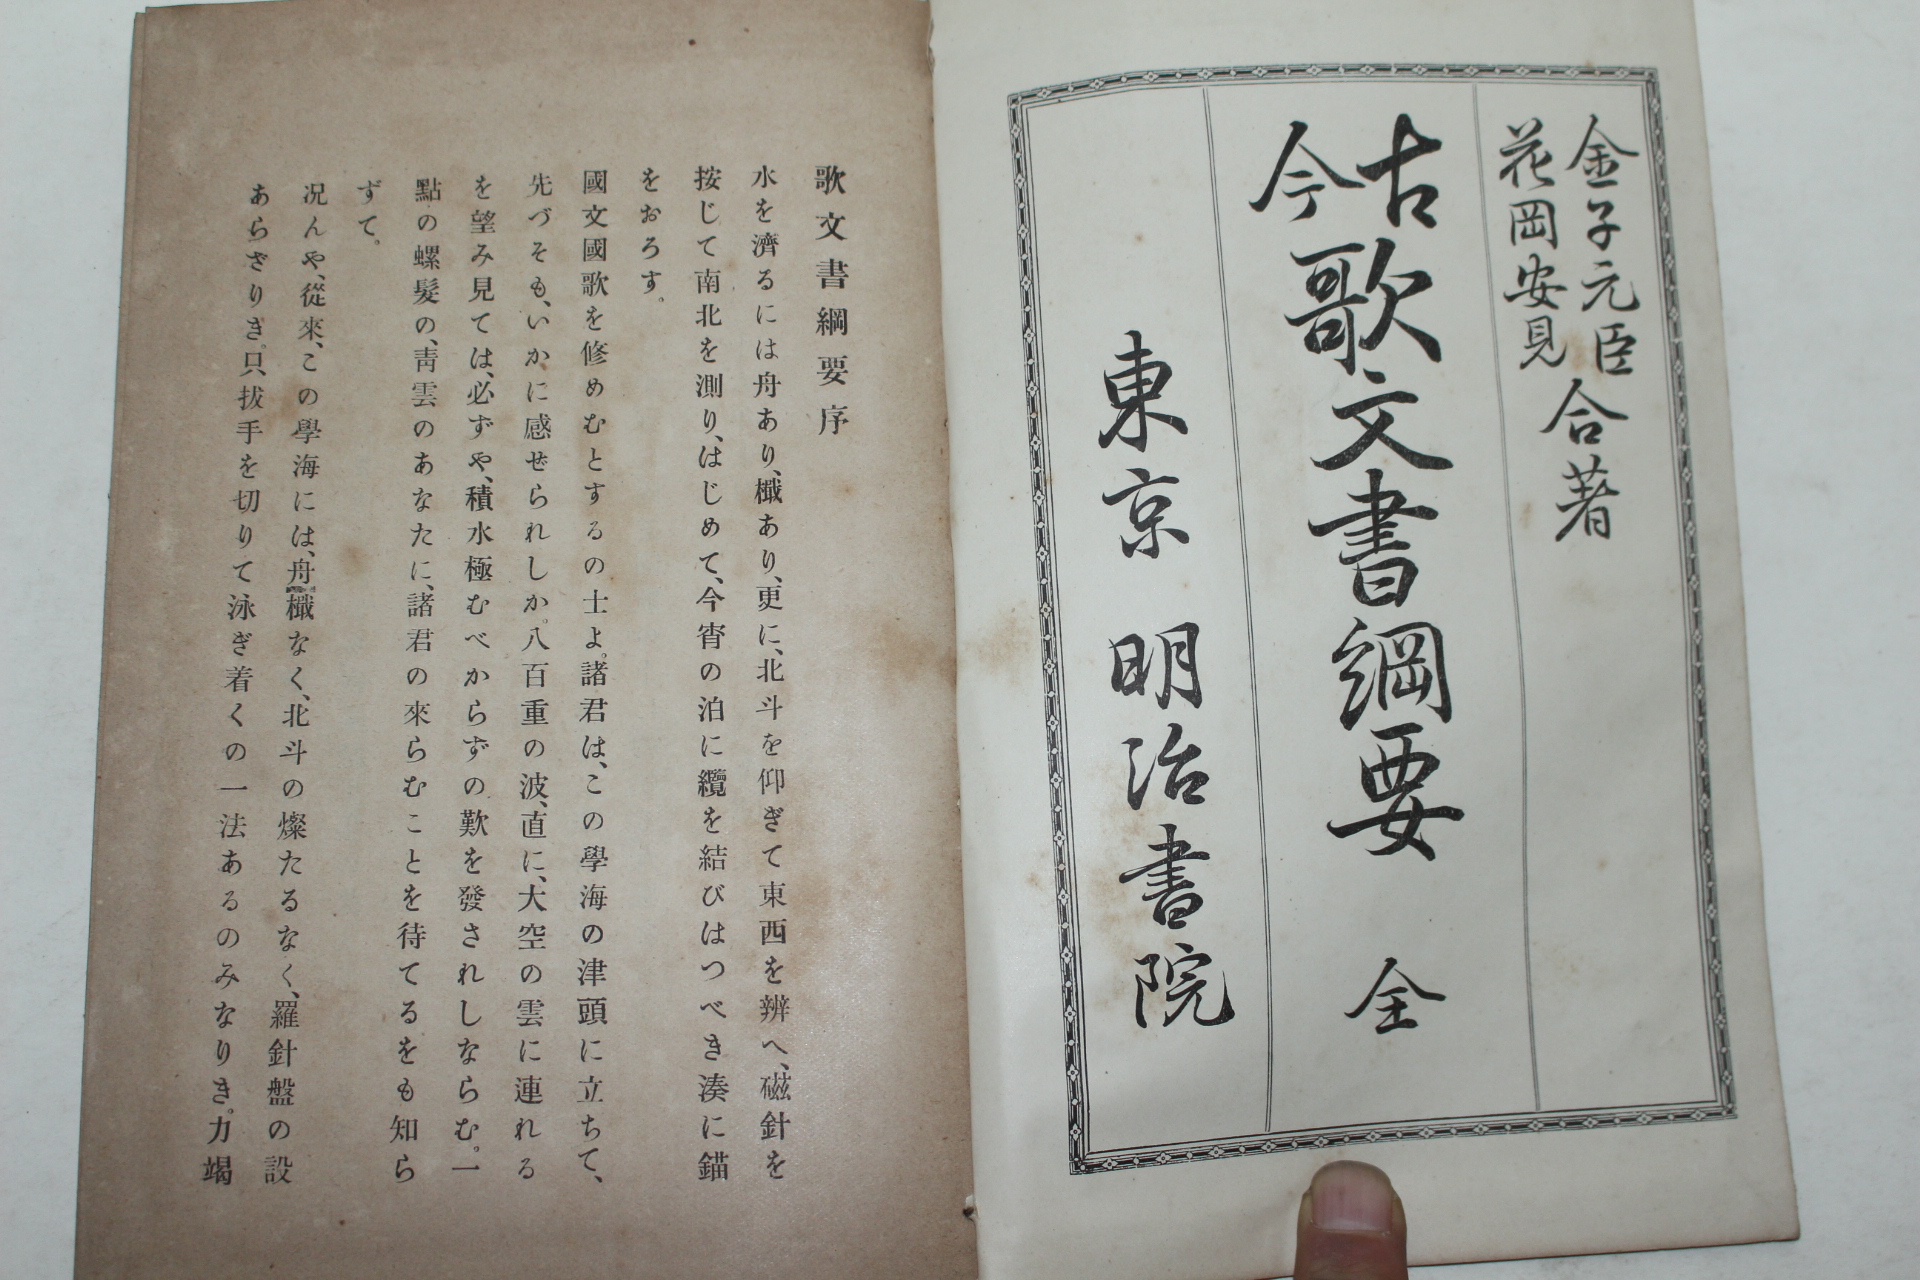 金子元臣
花岡安見
合著
古今歌文書綱要 全
東京 明治書院
歌文書綱要序
水を濟るには舟あり、檝あり、更に、北斗を仰ぎて東西を辨へ、磁針を
按じて南北を測り、はじめて、今宵の泊に纜を結びはつべき湊に錨
をおろす。
國文國歌を修めむとするの士よ。諸君は、この學海の津頭に立ちて、
先づそも、いかに感ぜられしか。八百重の波、直に、大空の雲に連れる
を望み見ては、必ずや、積水極むべからずの歎を發されしならむ。一
點の螺髮の、靑雲のあなたに、諸君の來らむことを待てるをも知ら
ずて。
况んや、從來、この學海には、舟檝なく、北斗の燦たるなく、羅針盤の設
あらざりき。只、拔手を切りて泳ぎ着くの一法あるのみなりき。力竭